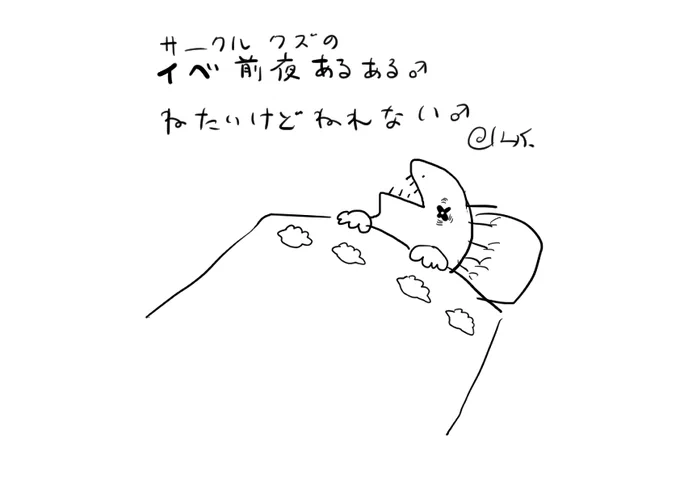 サークル クズの
イベ前夜あるある♂
ねたいけど ねれない♂